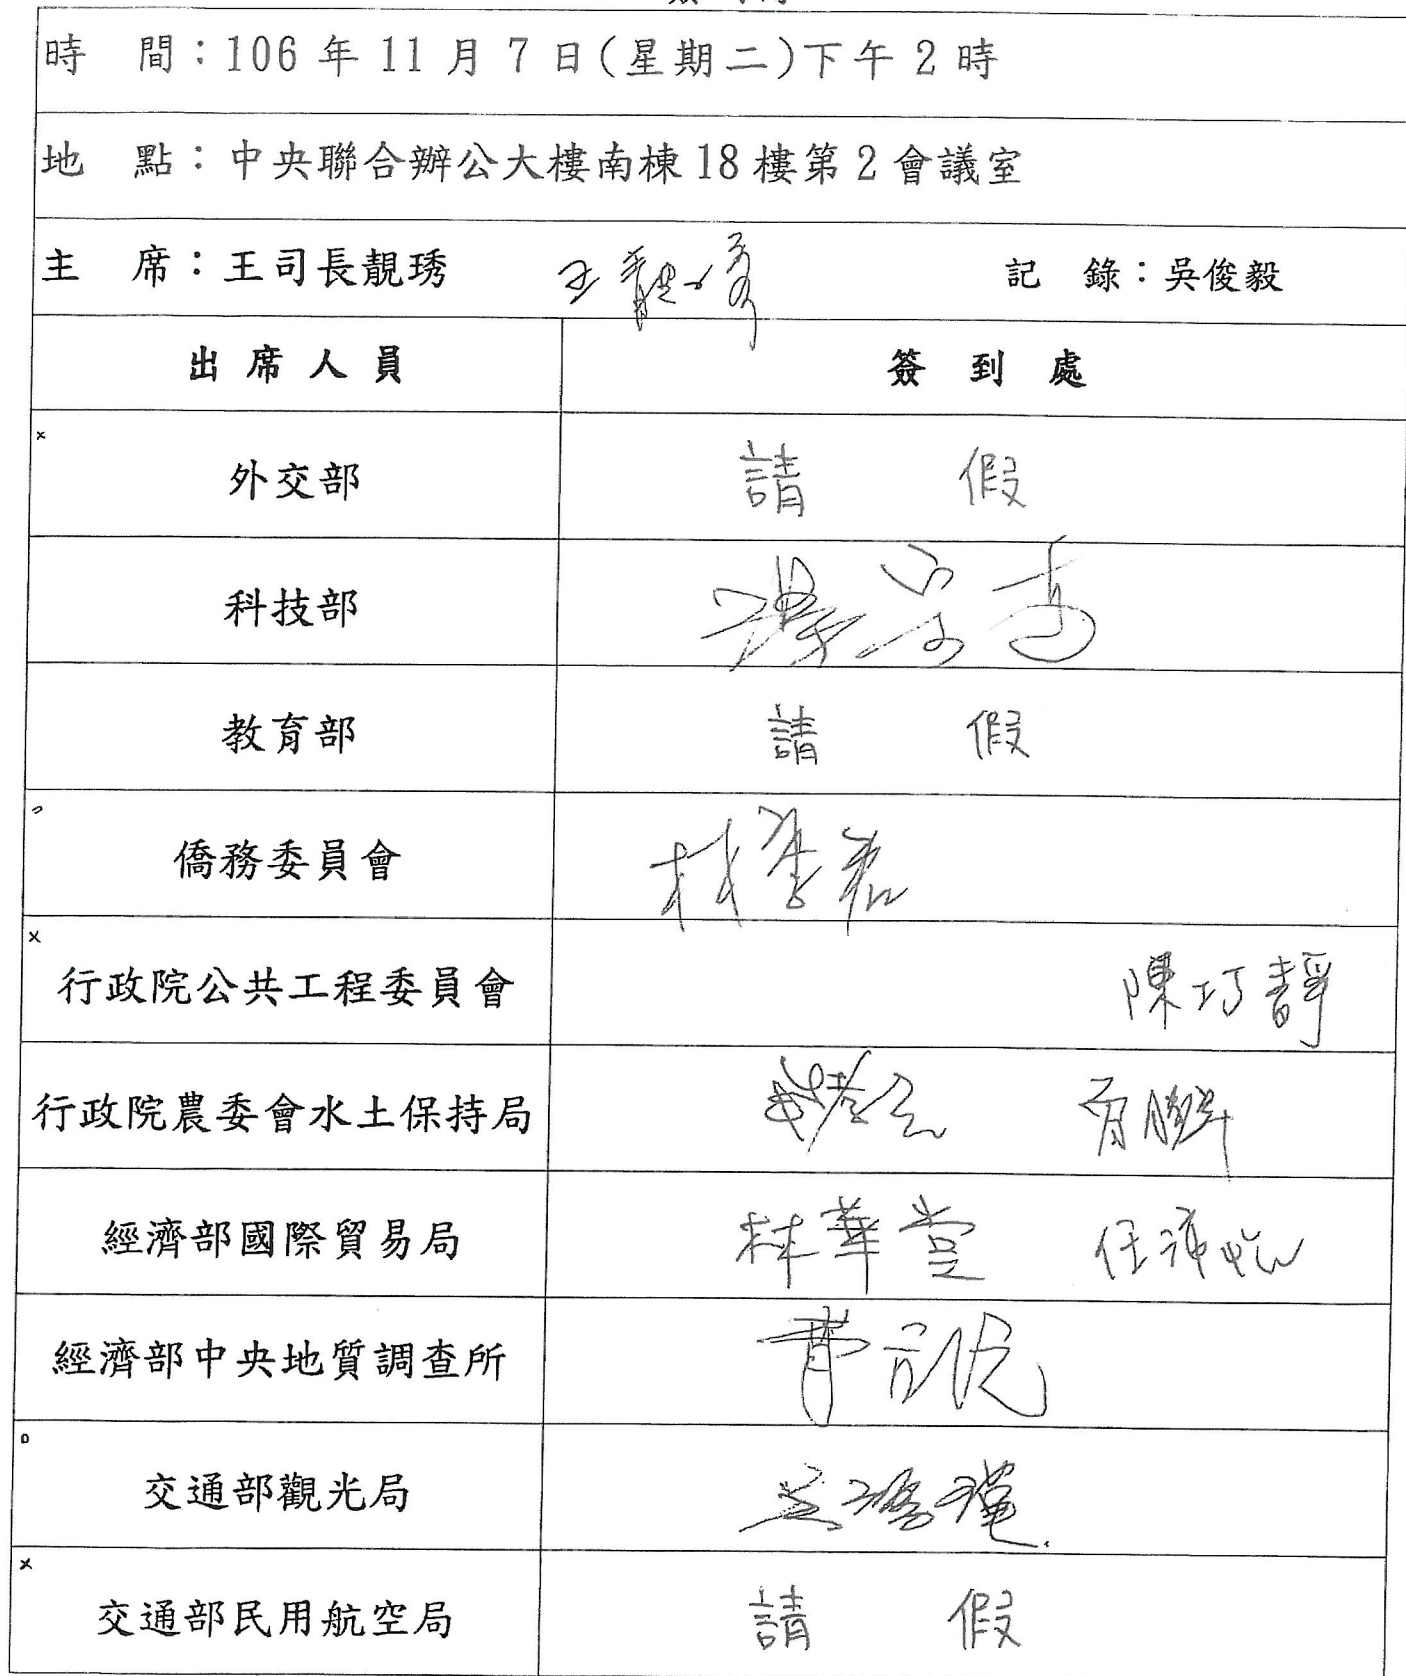 時　間：106 年 11 月 7 日(星期二)下午 2 時
地　點：中央聯合辦公大樓南棟 18 樓第 2 會議室
主　席：王司長靚琇　王靚琇　記　錄：吳俊毅
出席人員　簽到處
外交部　請　假
科技部
教育部　請　假
僑務委員會　林
行政院公共工程委員會　陳巧靜
行政院農委會水土保持局
經濟部國際貿易局　林華堂　任沛
經濟部中央地質調查所
交通部觀光局
交通部民用航空局　請　假